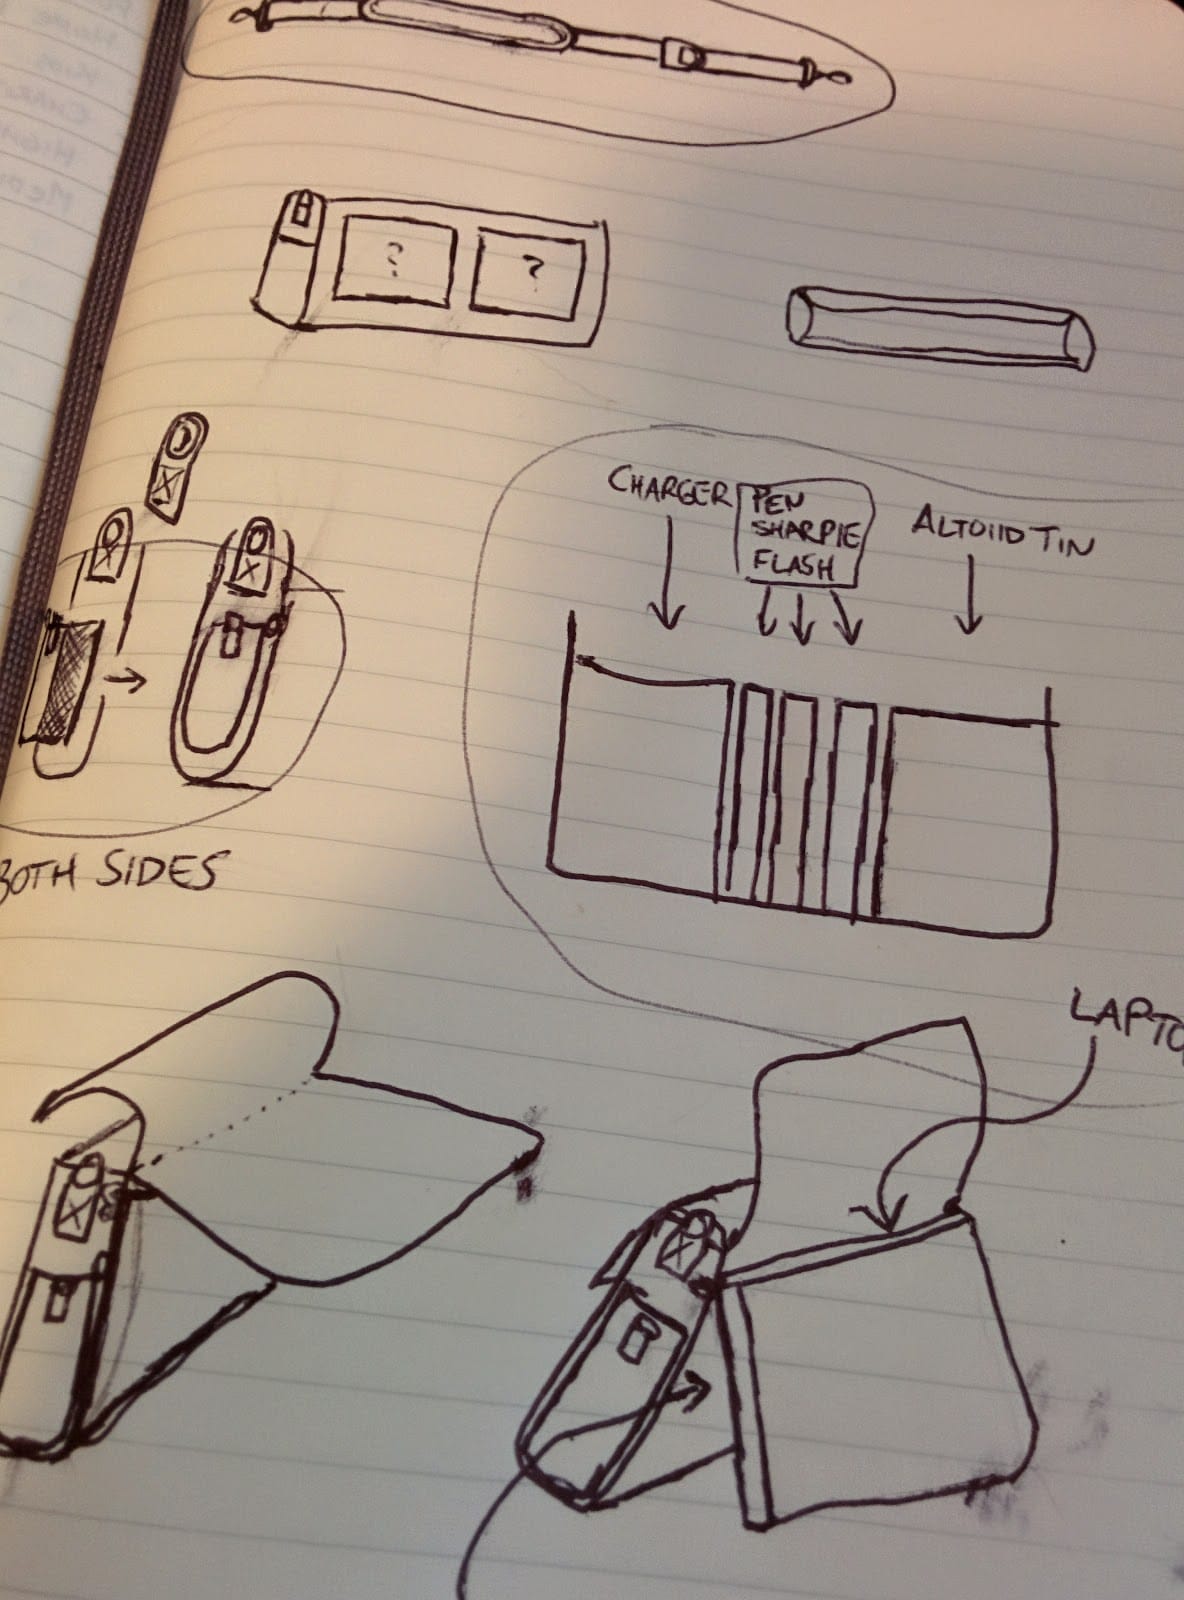 ?
?
CHARGER
PEN
SHARPIE
FLASH
ALTOIID TIN
BOTH SIDES
LAPTO